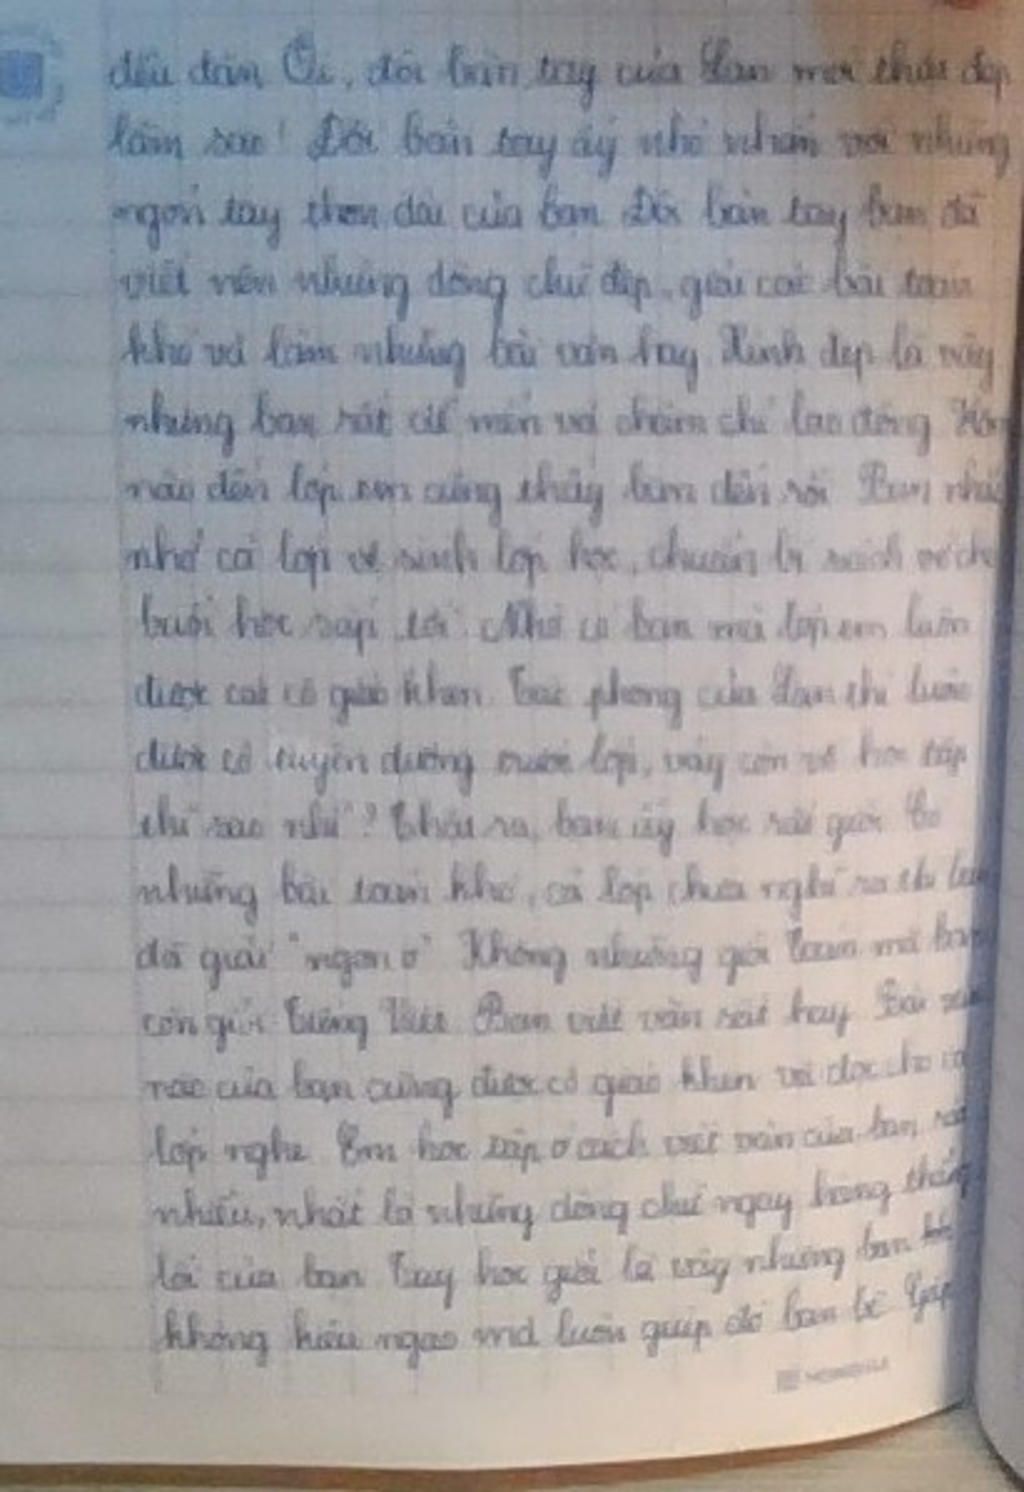 đều đặn Ôi, đôi bàn tay của Lan mới thật đẹp
làm sao! Đôi bàn tay ấy nhỏ nhắn với những
ngón tay thon dài của bạn Đôi bàn tay bạn đã
viết nên những dòng chữ đẹp, giải các bài toán
khó và làm những bài văn hay Xinh đẹp là vậy
nhưng bạn rất dễ mến và chăm chỉ lao động Hôm
nào đến lớp em cũng thấy bạn đến rồi Bạn nhắc
nhở cả lớp vệ sinh lớp học, chuẩn bị sách vở cho
buổi học sắp tới Nhờ có bạn mà lớp em luôn
được các cô giáo khen Tác phong của Lan thì luôn
được cô tuyên dương trước lớp, vậy còn về học tập
thì sao nhỉ? Thật ra, bạn ấy học rất giỏi Có
những bài toán khó, cả lớp chưa nghĩ ra thì Lan
đã giải "ngon ơ" Không những giỏi Toán mà bạn
còn giỏi Tiếng Việt Bạn viết văn rất hay Bài
nào của bạn cũng được cô giáo khen và đọc cho cả
lớp nghe Em học tập ở cách viết văn của bạn rất
nhiều, nhất là những dòng chữ ngay hàng thẳng
lối của bạn Tuy học giỏi là vậy nhưng bạn
không kiêu ngạo mà luôn giúp đỡ bạn bè Gặp